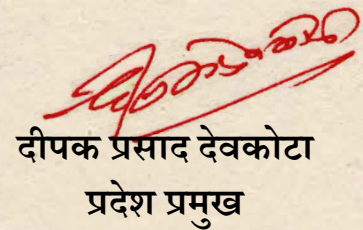 दीपक प्रसाद देवकोटा
प्रदेश प्रमुख